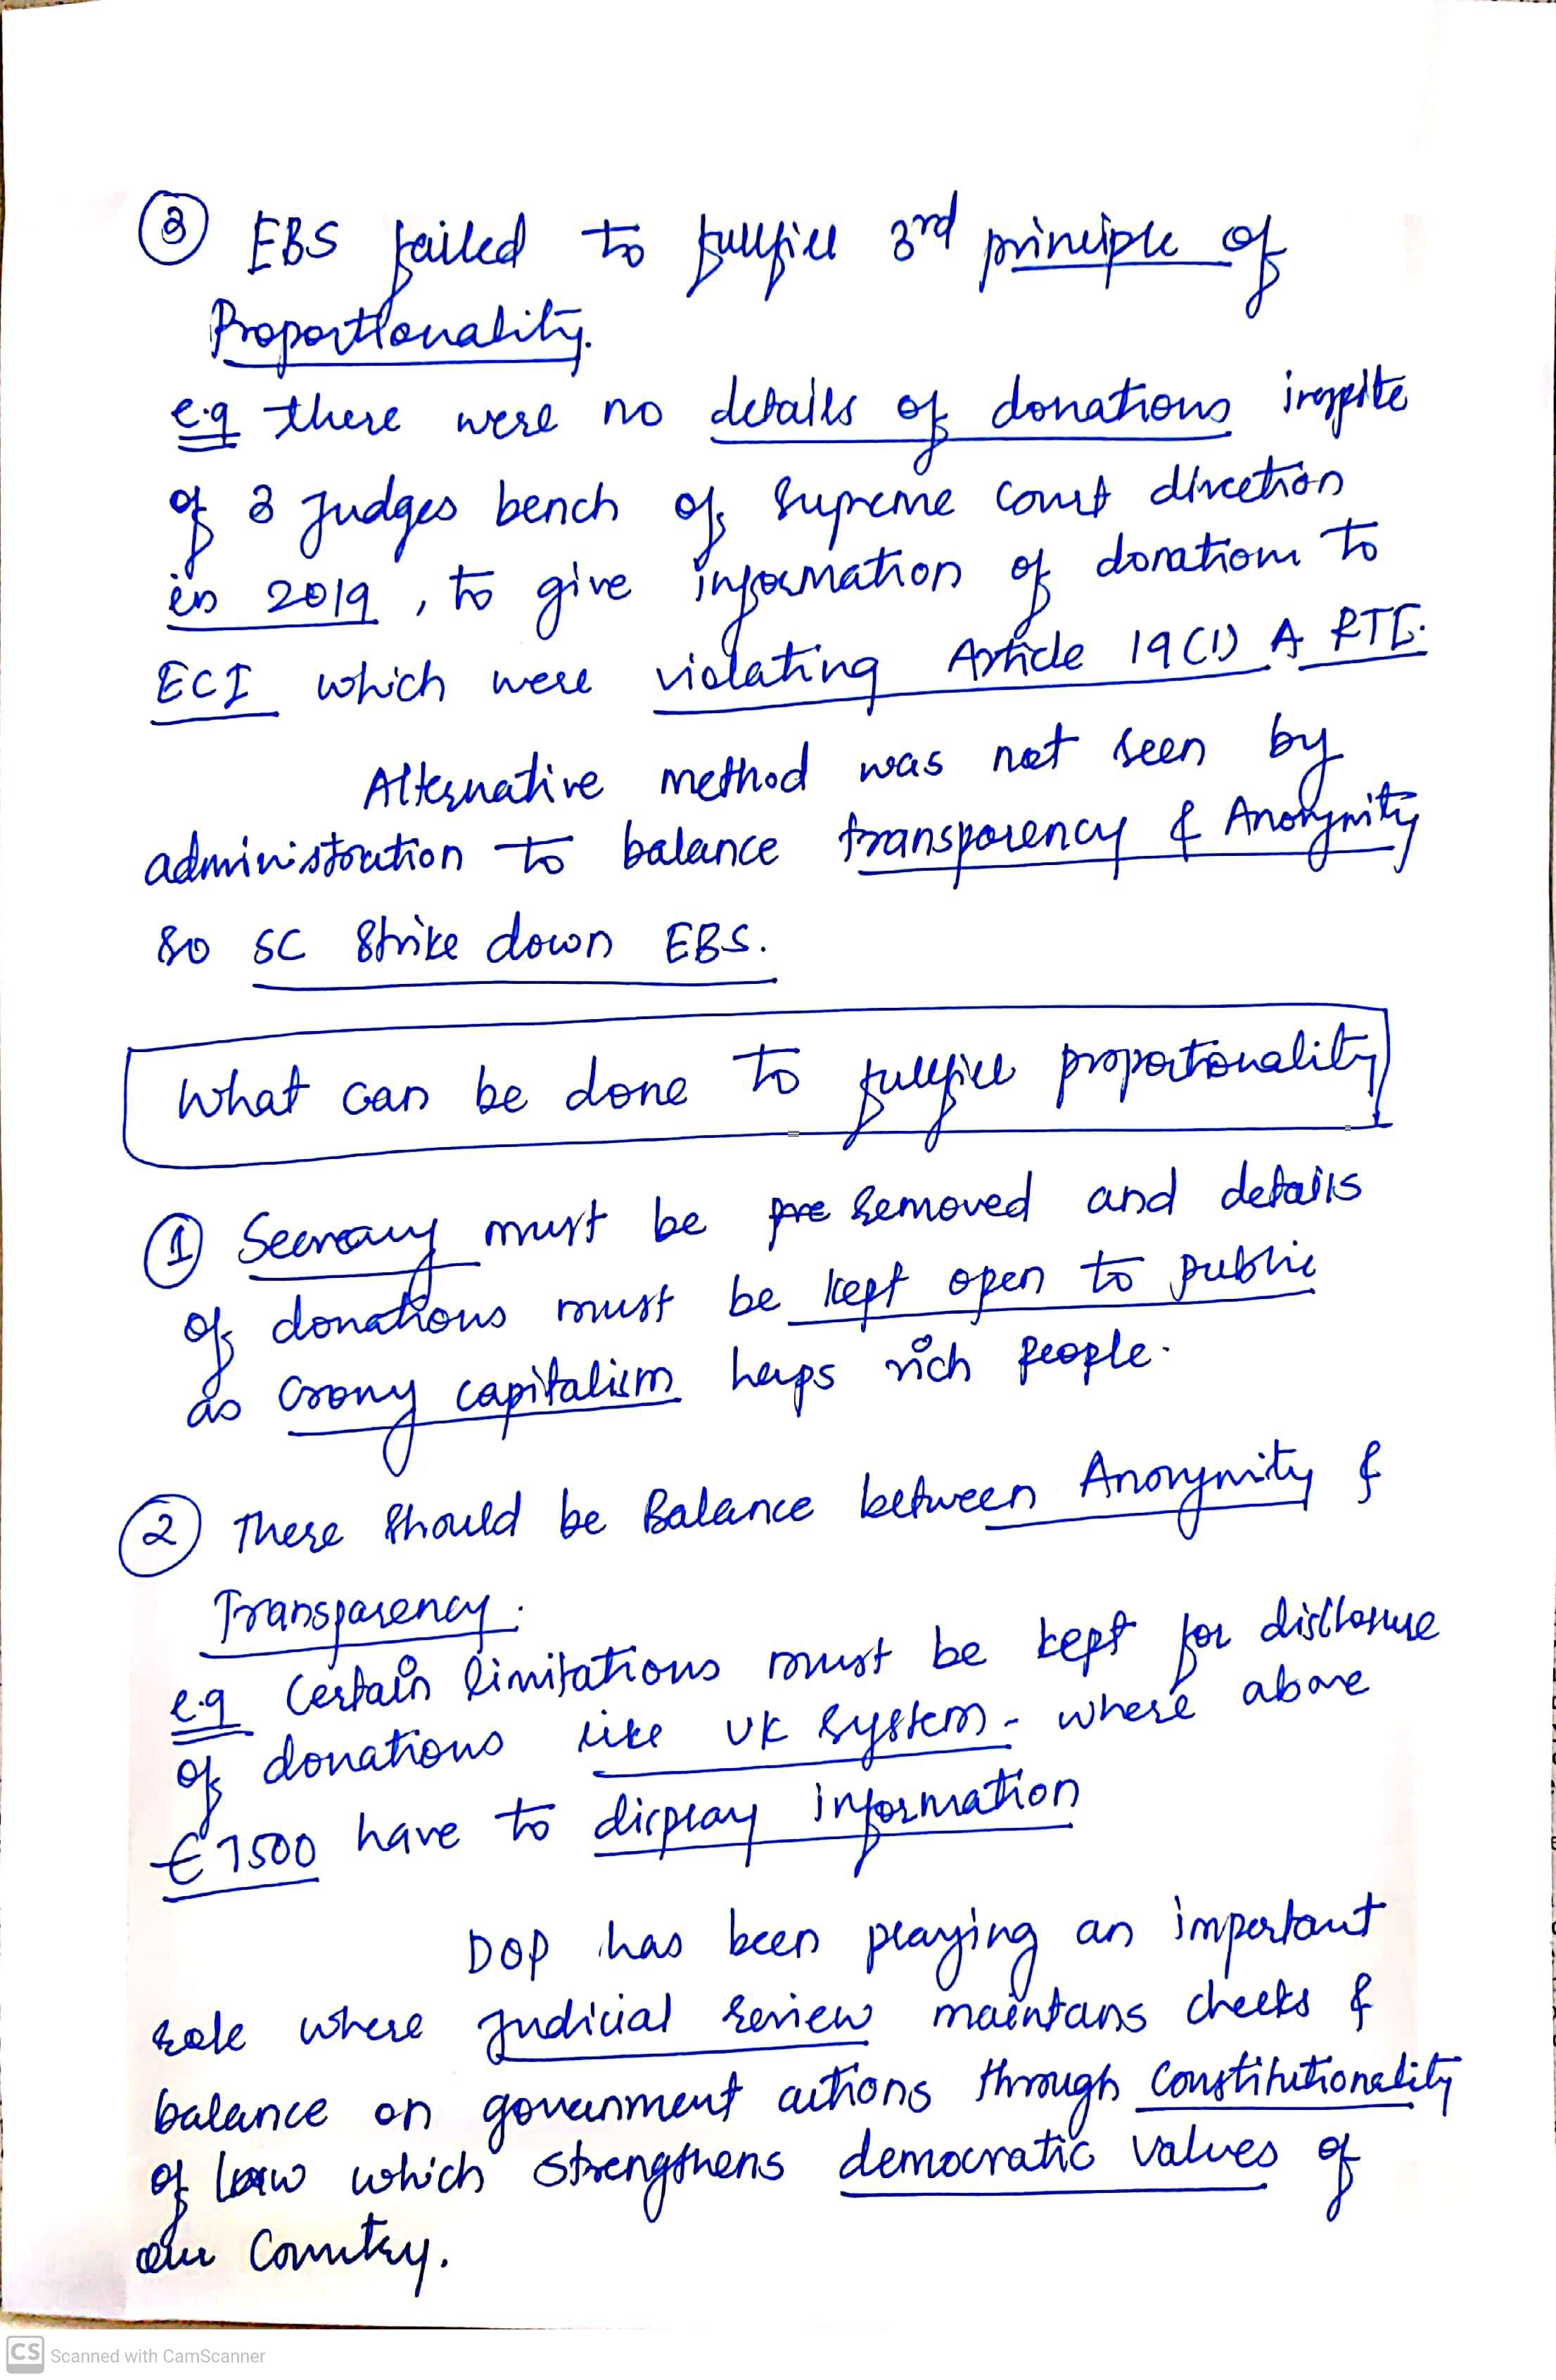 ③ EBS failed to fullfill 3rd principle of
Proportionality.
e.g there were no details of donations inspite
of 3 Judges bench of Supreme Court direction
in 2019, to give information of donations to
ECI which were violating Article 19(1) A RTI.
Alternative method was not seen by
administration to balance transparency & Anonymity
so SC Strike down EBS.
What can be done to fullfill proportionality
① must be pre removed and details
of donations must be kept open to public
as crony capitalism helps rich people.
② There should be Balance between Anonymity &
Transparency.
e.g Certain limitations must be kept for disclosure
of donations like UK system - where above
€7500 have to display information
DOP has been playing an important
role where judicial review maintans checks &
balance on government actions through Constitutionality
of law which strengthens democratic values of
our Country.
CS Scanned with CamScanner